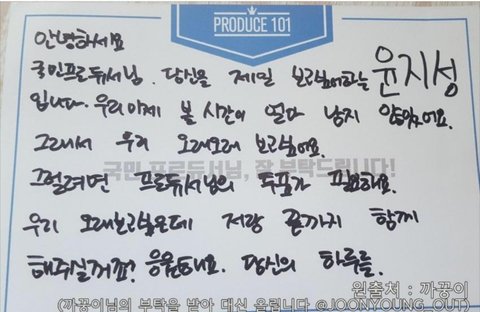 PRODUCE 101
안녕하세요
국민프로듀서님. 당신을 제일 보고싶어하는 윤지성
입니다. 우리 이제 볼 시간이 얼마 남지 않았어요.
그래서 우리 오래오래 보고싶어요.
국민 프로듀서님, 잘 부탁드립니다!
그럴려면 프로듀서님의 투표가 필요해요.
우리 오래보고싶은데 저랑 끝까지 함께
해주실거죠? 응원해요. 당신의 하루를.
원출처 : 까꿍이
(까꿍이님의 부탁을 받아 대신 올립니다 @JOONYOUNG_OUT)